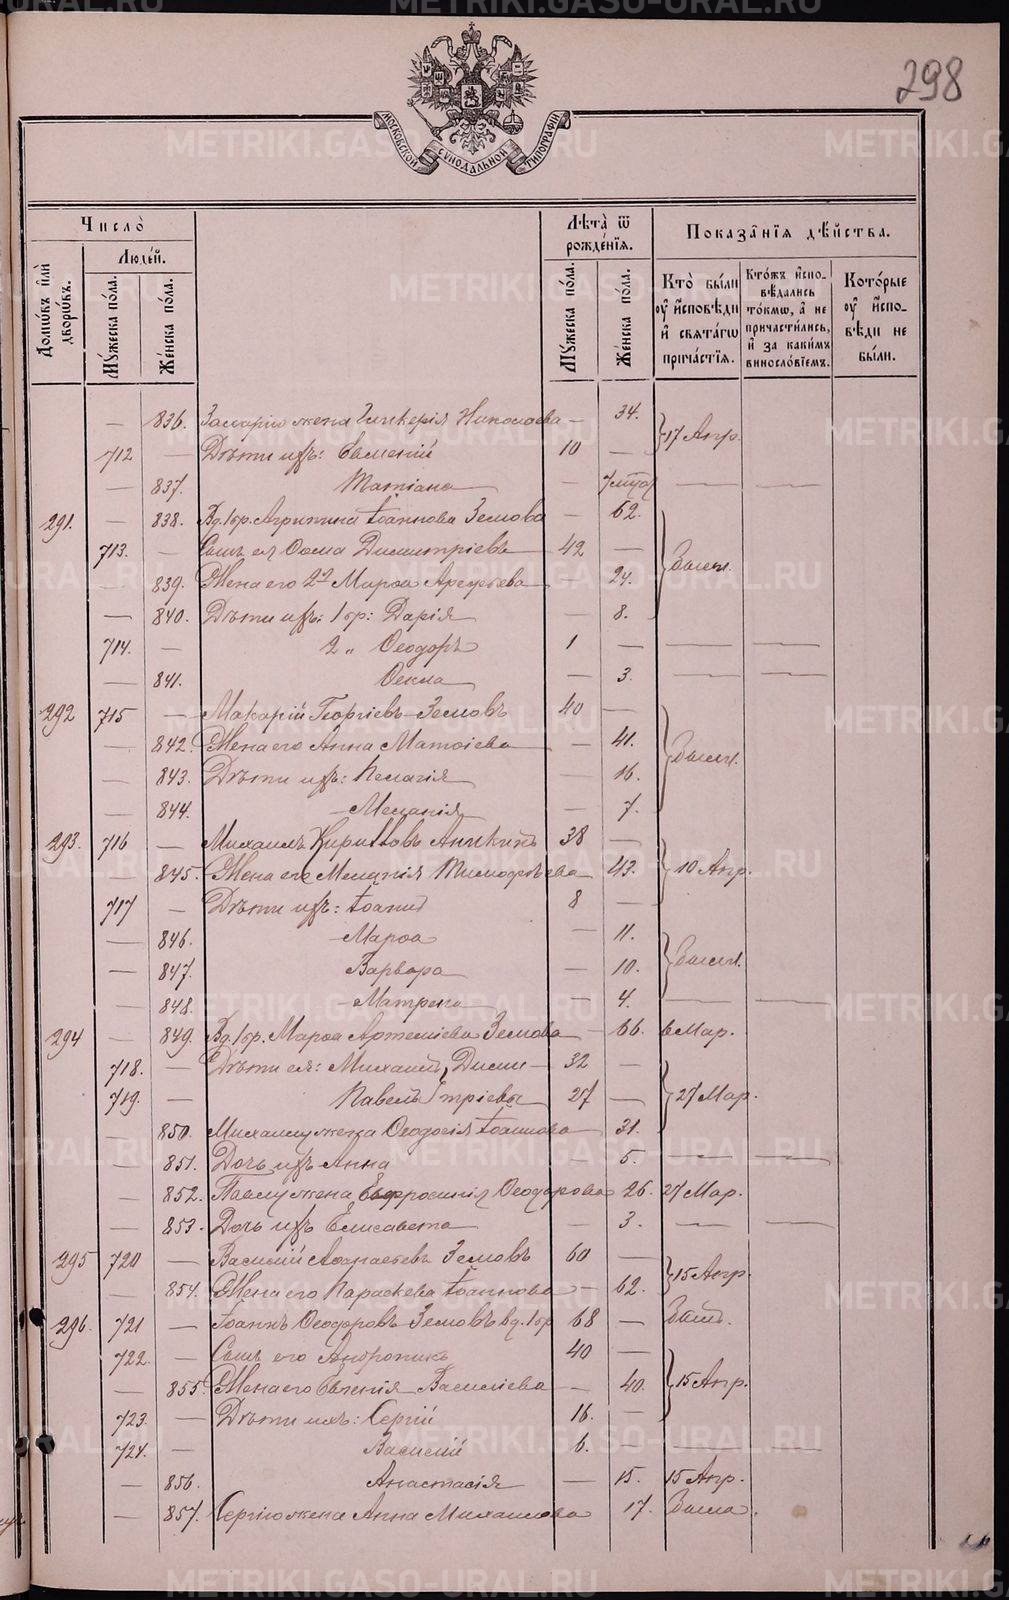 298
МОСКОВСКОЙ СѴНОДАЛЬНОЙ ТИПОГРАФІИ
Число̀
Людей.
Домѡвъ и҆лѝ дворѡвъ.
Мꙋжеска по́ла.
Же́нска по́ла.
Лѣта̀ ѿ рожде́нїѧ.
Мꙋжеска по́ла.
Же́нска по́ла.
Показа̑нїѧ дѣ́йства.
Кто̀ бы́ли оу҆ и҆сповѣди и҆ свѧта́гѡ прича́стїѧ.
Кто́жъ и҆спо-вѣдались то́кмѡ, а҆ не причасти́лись, и҆ за каки́мъ винослѡвїемъ.
Кото́рые оу҆ и҆спо-вѣди не бы́ли.
— 836. Захарію жена Гликерія Николаева — 34. } 17 Апр.
712 — Дѣти ихъ: Евмений 10 —
— 837. Татіана — 7 мѣс. — —
291. — 838. Вд. 1 бр. Агрипина Іоаннова Земова — 62.
713. — Сынъ ея Ѳома Димитріевъ 42 — } Были.
— 839. Жена его 2я Марѳа Арефьева — 24.
— 840. Дѣти ихъ: 1 бр: Дарія — 8.
714. — 2 „ Ѳеодоръ 1 — — —
— 841. Ѳекла — 3. — —
292 715 — Макарій Георгіевъ Земовъ 40 —
— 842. Жена его Анна Матѳіева — 41. } Были.
— 843. Дѣти ихъ: Пелагія — 16.
— 844. Меланія — 7.
293. 716 — Михаилъ Кирилловъ Аникинъ 38 —
— 845. Жена его Меланія Тимофѣева — 43. } 10 Апр.
717 — Дѣти ихъ: Іоаннъ 8 —
— 846. Марѳа — 11.
— 847. Варвара — 10. } Были.
— 848. Матрена — 4. — —
294 — 849. Вд. 1 бр. Марѳа Артеміева Земова — 66. 6 Мар.
718. — Дѣти ея: Михаилъ, Дими- 32 —
719. — Павелъ тріевы 27 — } 27 Мар.
— 850. Михаилу жена Ѳеодосія Іоаннова 31.
— 851. Дочь ихъ Анна — 5. — —
— 852. Павлу жена Евфросинія Ѳеодорова 26. 27 Мар.
— 853. Дочь ихъ Елисавета — 3. — —
295 720 — Василій Аѳанасьевъ Земовъ 60 —
— 854. Жена его Параскева Іоаннова — 62. } 15 Апр.
296. 721 — Іоаннъ Ѳеодоровъ Земовъ вд. 1 бр 68 — Былъ.
722. — Сынъ его Андроникъ 40 —
— 855. Жена его Евгенія Василіева — 40. } 15 Апр.
723. — Дѣти ихъ: Сергій 16. —
724. — Василій 6. — — —
— 856. Анастасія — 15. 15 Апр.
— 857. Сергію жена Анна Михаилова 17. Была.
METRIKI.GASO-URAL.RU